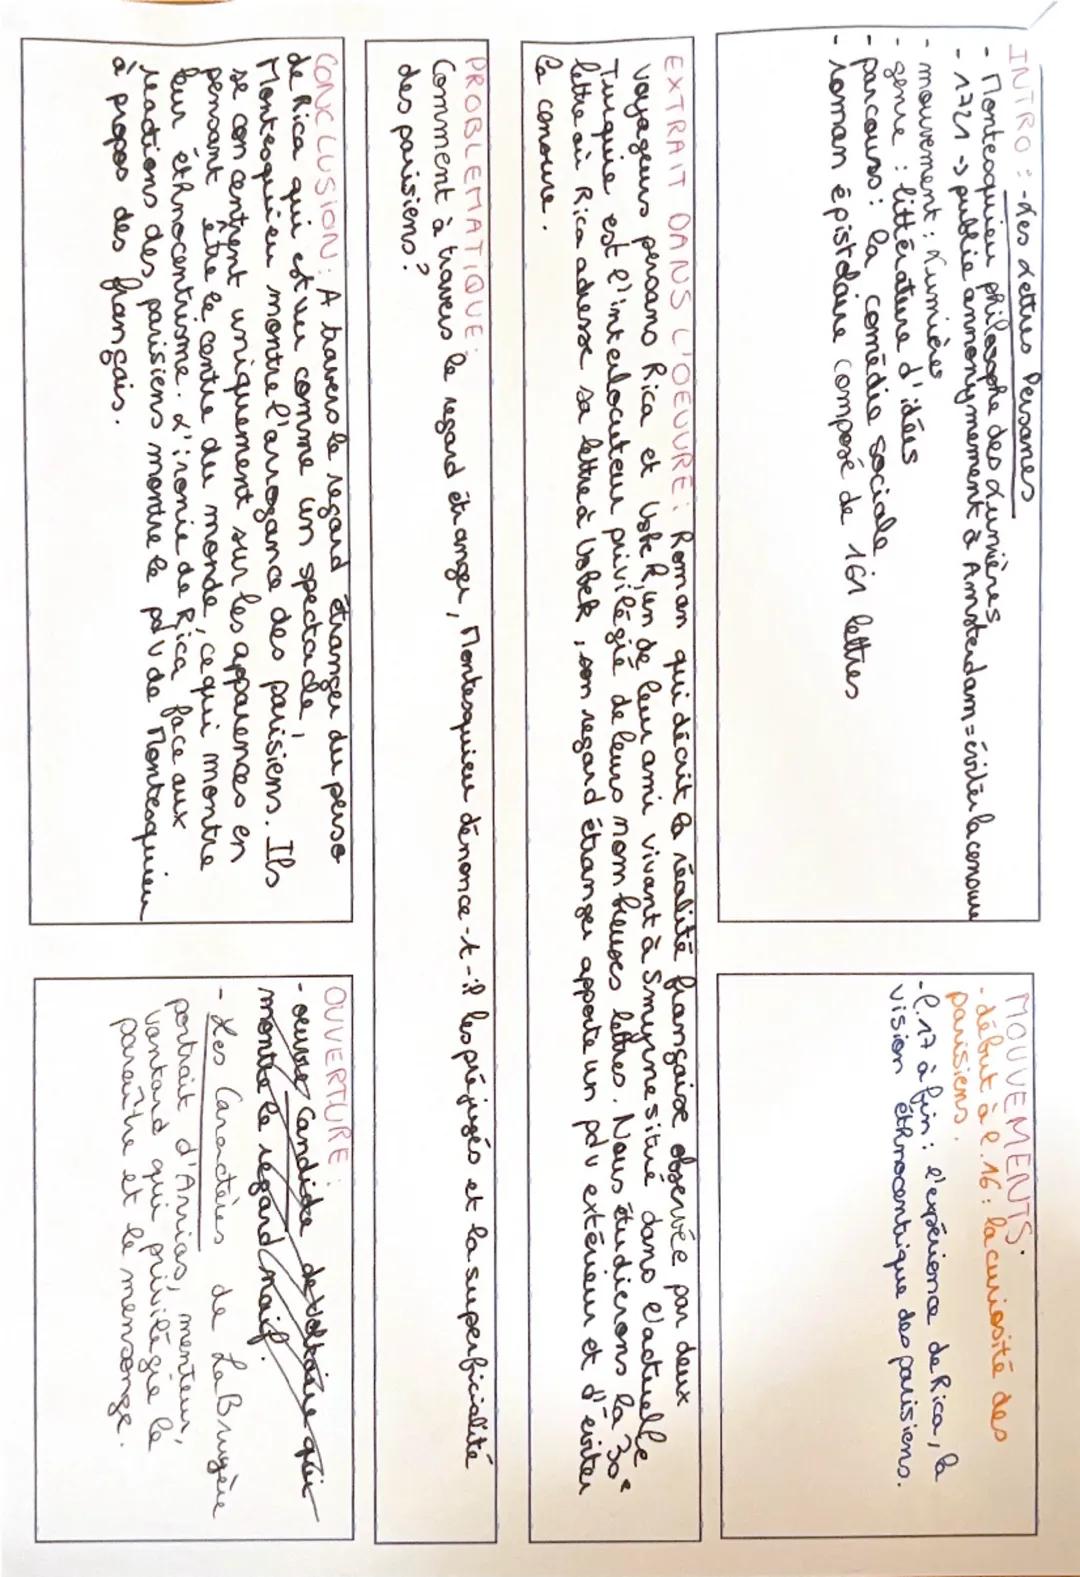 INTRO : - Les Lettres Persanes
- Montesquieu philosophe des Lumières
- 1721 → publie annonymement à Amsterdam = éviter la censure
- mouvement : Lumières
- genre : littérature d'idées
- parcours : la comédie sociale
- roman épistolaire composé de 161 lettres
MOUVEMENTS.
- début à l.16 : la curiosité des
parisiens.
- l.17 à fin : l'expérience de Rica, la
vision éthnocentrique des parisiens.
EXTRAIT DANS L'OEUVRE : Roman qui décrit la réalité française observée par deux
voyageurs persans Rica et Usbek, un de leur ami vivant à Smyrne situé dans l'actuelle
Turquie est l'interlocuteur privilégié de leurs nombreuses lettres. Nous étudierons la 30e
lettre où Rica adresse sa lettre à Usbek, son regard étranger apporte un pdv extérieur et d'éviter
la censure.
PROBLEMATIQUE :
Comment à travers le regard étranger, Montesquieu dénonce-t-il les préjugés et la superficialité
des parisiens ?
CONCLUSION : A travers le regard étranger du perse
de Rica qui est vu comme un spectacle,
Montesquieu montre l'arrogance des parisiens. Ils
se concentrent uniquement sur les apparences en
pensant être le centre du monde, ce qui montre
leur éthnocentrisme. L'ironie de Rica face aux
réactions des parisiens montre le pdv de Montesquieu
à propos des français.
OUVERTURE :
- oeuvre Candide de Voltaire qui
montre le regard naïf.
- Les Caractères de La Bruyère
portrait d'Arrias, menteur,
vantard qui privilégie le
paraître et le mensonge.